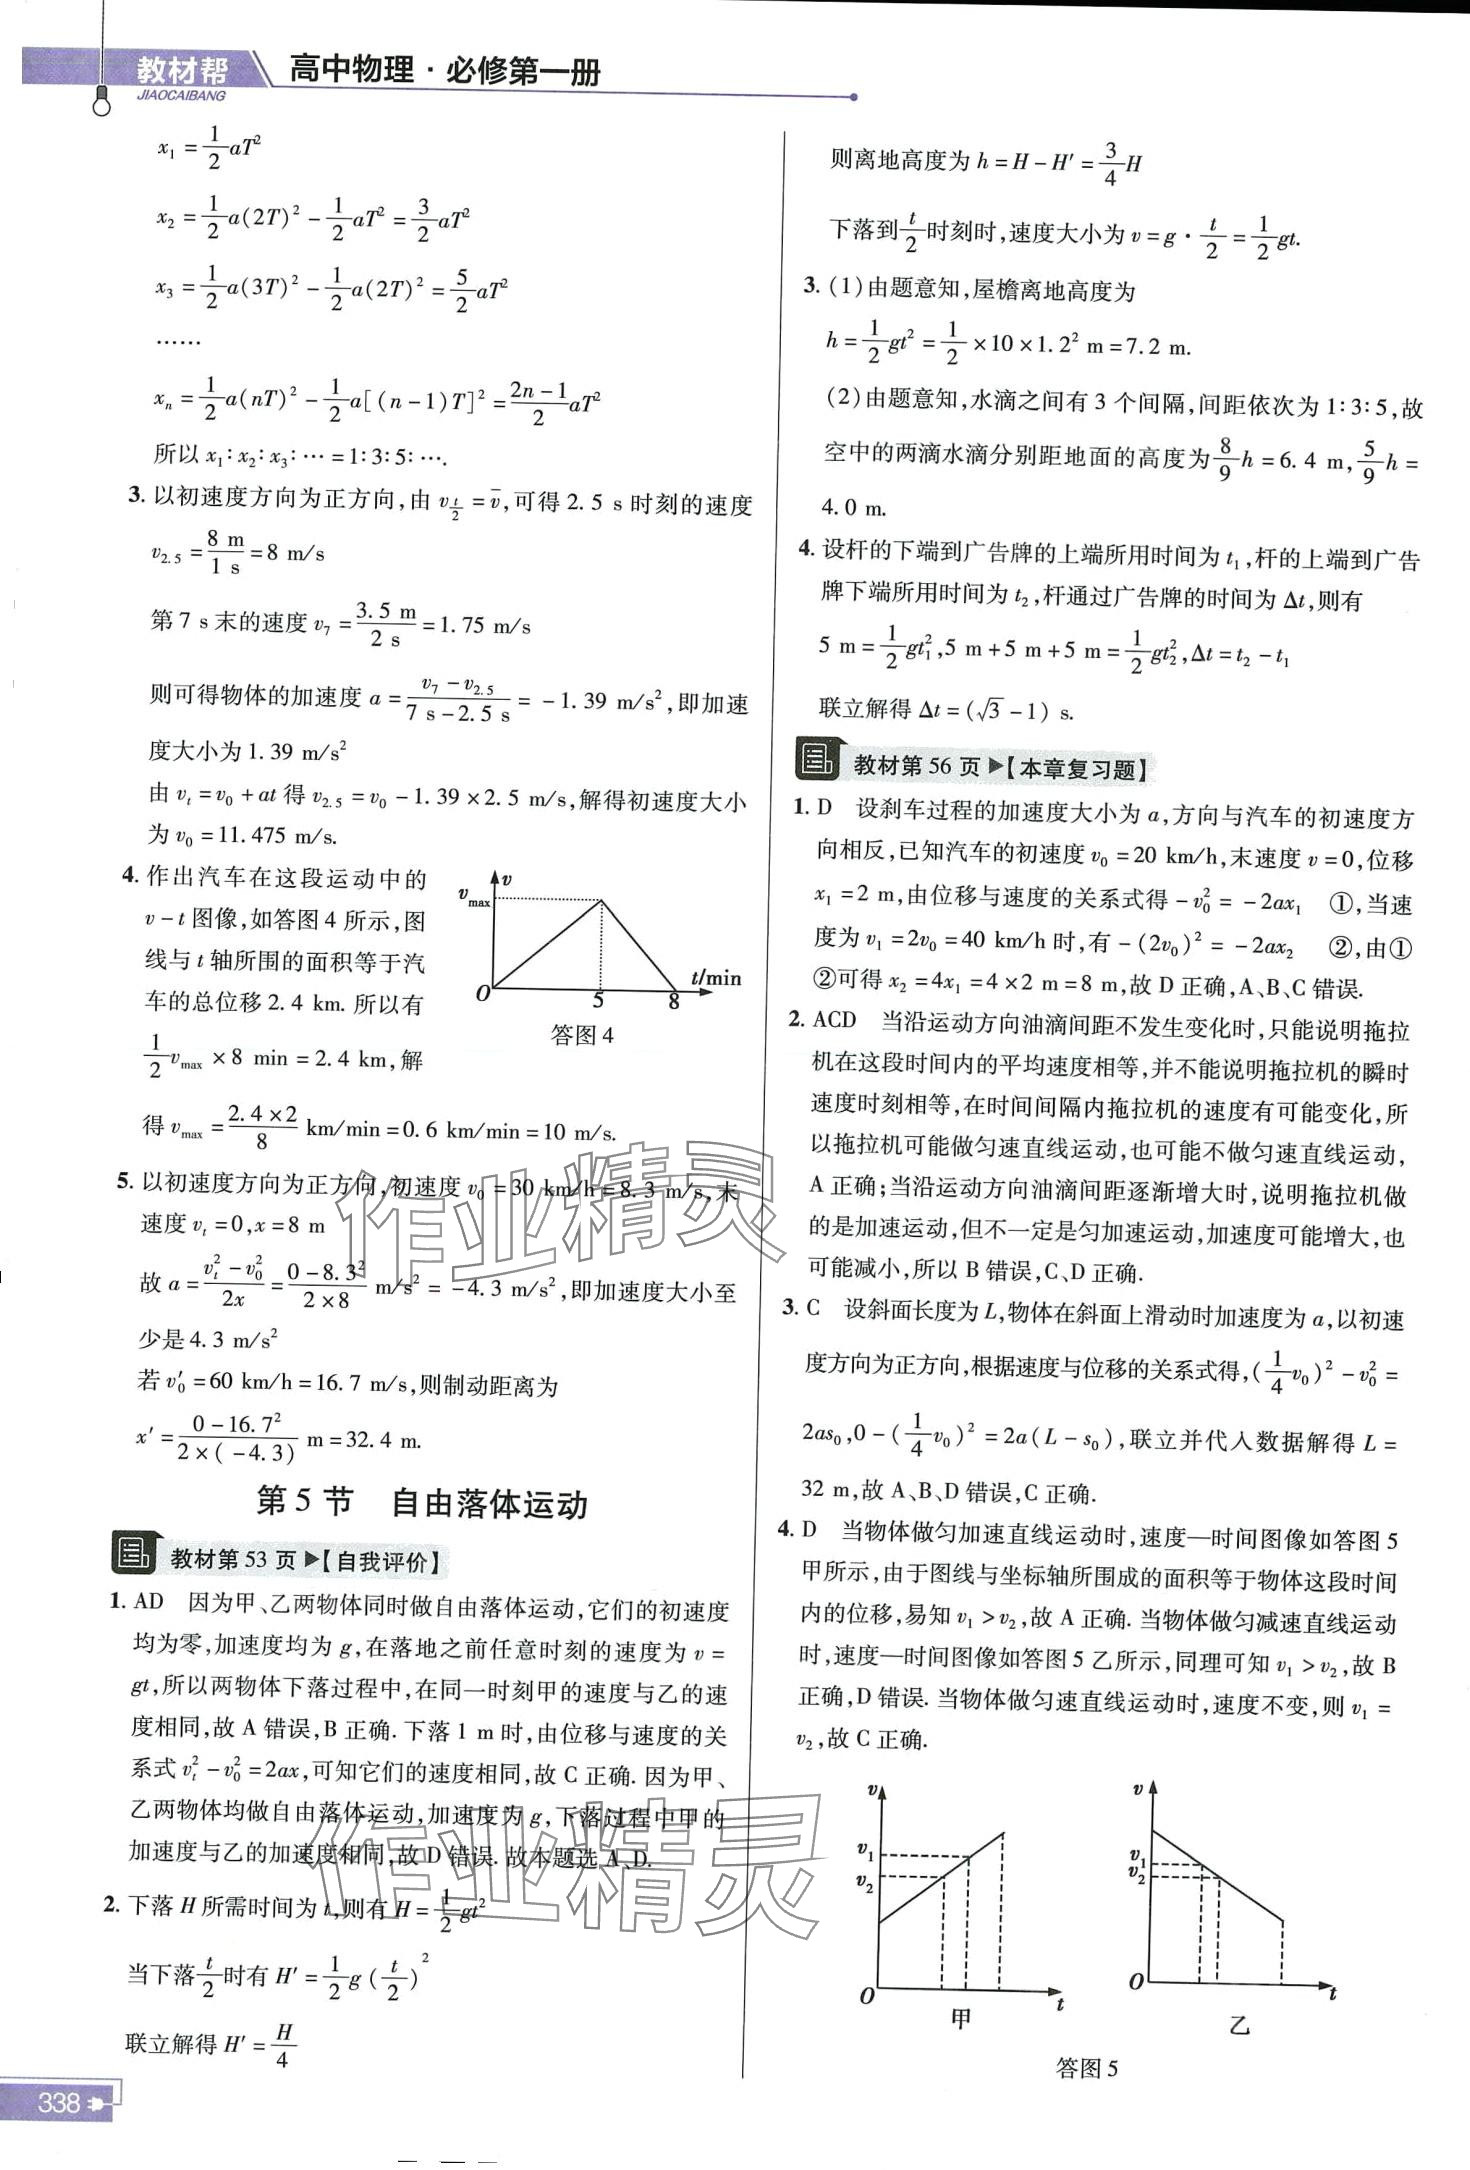 教材帮
JIAOCAIBANG
高中物理·必修第一册
x₁ = 1/2 aT²
x₂ = 1/2 a(2T)² − 1/2 aT² = 3/2 aT²
x₃ = 1/2 a(3T)² − 1/2 a(2T)² = 5/2 aT²
……
xₙ = 1/2 a(nT)² − 1/2 a[(n−1)T]² = (2n−1)/2 aT²
所以 x₁∶x₂∶x₃∶⋯=1∶3∶5∶⋯.
3. 以初速度方向为正方向,由 v_{t/2} = v̄,可得 2.5 s 时刻的速度
v₂.₅ = 8 m/1 s = 8 m/s
第 7 s 末的速度 v₇ = 3.5 m/2 s = 1.75 m/s
则可得物体的加速度 a = (v₇ − v₂.₅)/(7 s − 2.5 s) = −1.39 m/s²,即加速
度大小为 1.39 m/s²
由 vₜ = v₀ + at 得 v₂.₅ = v₀ − 1.39 × 2.5 m/s,解得初速度大小
为 v₀ = 11.475 m/s.
4. 作出汽车在这段运动中的
v − t 图像,如答图 4 所示,图
线与 t 轴所围的面积等于汽
车的总位移 2.4 km. 所以有
1/2 v_max × 8 min = 2.4 km,解
v
v_max
O
5
8
t/min
答图 4
得 v_max = (2.4 × 2)/8 km/min = 0.6 km/min = 10 m/s.
5. 以初速度方向为正方向,初速度 v₀ = 30 km/h = 8.3 m/s,末
速度 vₜ = 0, x = 8 m
故 a = (vₜ² − v₀²)/2x = (0 − 8.3²)/(2 × 8) m/s² = −4.3 m/s²,即加速度大小至
少是 4.3 m/s²
若 v₀′ = 60 km/h = 16.7 m/s,则制动距离为
x′ = (0 − 16.7²)/(2 × (−4.3)) m = 32.4 m.
第 5 节 自由落体运动
教材第 53 页 ▶【自我评价】
1. AD 因为甲、乙两物体同时做自由落体运动,它们的初速度
均为零,加速度均为 g,在落地之前任意时刻的速度为 v =
gt,所以两物体下落过程中,在同一时刻甲的速度与乙的速
度相同,故 A 错误,B 正确. 下落 1 m 时,由位移与速度的关
系式 vₜ² − v₀² = 2ax,可知它们的速度相同,故 C 正确. 因为甲、
乙两物体均做自由落体运动,加速度为 g,下落过程中甲的
加速度与乙的加速度相同,故 D 错误. 故本题选 A、D.
2. 下落 H 所需时间为 t,则有 H = 1/2 gt²
当下落 t/2 时有 H′ = 1/2 g(t/2)²
联立解得 H′ = H/4
338
则离地高度为 h = H − H′ = 3/4 H
下落到 t/2 时刻时,速度大小为 v = g · t/2 = 1/2 gt.
3. (1)由题意知,屋檐离地高度为
h = 1/2 gt² = 1/2 × 10 × 1.2² m = 7.2 m.
(2)由题意知,水滴之间有 3 个间隔,间距依次为 1∶3∶5,故
空中的两滴水滴分别距地面的高度为 8/9 h = 6.4 m, 5/9 h =
4.0 m.
4. 设杆的下端到广告牌的上端所用时间为 t₁,杆的上端到广告
牌下端所用时间为 t₂,杆通过广告牌的时间为 Δt,则有
5 m = 1/2 gt₁², 5 m + 5 m + 5 m = 1/2 gt₂², Δt = t₂ − t₁
联立解得 Δt = (√3 − 1) s.
教材第 56 页 ▶【本章复习题】
1. D 设刹车过程的加速度大小为 a,方向与汽车的初速度方
向相反,已知汽车的初速度 v₀ = 20 km/h,末速度 v = 0,位移
x₁ = 2 m,由位移与速度的关系式得 −v₀² = −2ax₁ ①,当速
度为 v₁ = 2v₀ = 40 km/h 时,有 −(2v₀)² = −2ax₂ ②,由①
②可得 x₂ = 4x₁ = 4 × 2 m = 8 m,故 D 正确,A、B、C 错误.
2. ACD 当沿运动方向油滴间距不发生变化时,只能说明拖拉
机在这段时间内的平均速度相等,并不能说明拖拉机的瞬时
速度时刻相等,在时间间隔内拖拉机的速度有可能变化,所
以拖拉机可能做匀速直线运动,也可能不做匀速直线运动,
A 正确;当沿运动方向油滴间距逐渐增大时,说明拖拉机做
的是加速运动,但不一定是匀加速运动,加速度可能增大,也
可能减小,所以 B 错误,C、D 正确.
3. C 设斜面长度为 L,物体在斜面上滑动时加速度为 a,以初速
度方向为正方向,根据速度与位移的关系式得,(1/4 v₀)² − v₀² =
2as₀, 0 − (1/4 v₀)² = 2a(L − s₀),联立并代入数据解得 L =
32 m,故 A、B、D 错误,C 正确.
4. D 当物体做匀加速直线运动时,速度—时间图像如答图 5
甲所示,由于图线与坐标轴所围成的面积等于物体这段时间
内的位移,易知 v₁ > v₂,故 A 正确. 当物体做匀减速直线运动
时,速度—时间图像如答图 5 乙所示,同理可知 v₁ > v₂,故 B
正确,D 错误. 当物体做匀速直线运动时,速度不变,则 v₁ =
v₂,故 C 正确.
v
v₁
v₂
O
t
甲
v
v₁
v₂
O
t
乙
答图 5
作业精灵
作业精灵